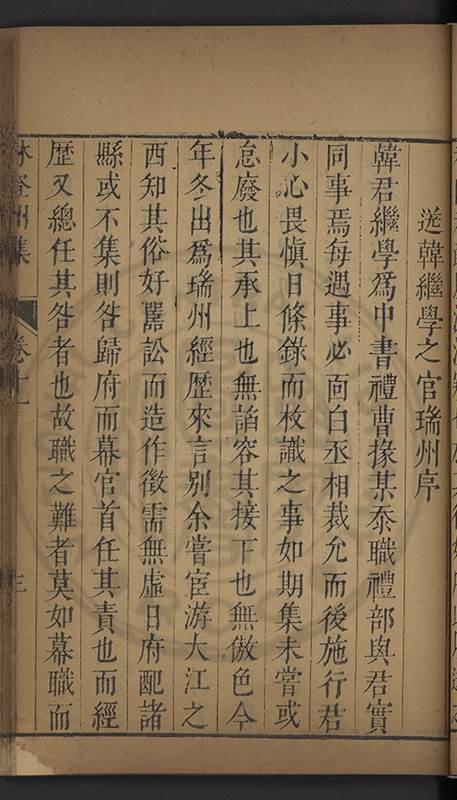 送韓繼學之官瑞州序
韓君繼學爲中書禮曹掾某忝職禮部與君實
同事焉每遇事必面白丞相裁允而後施行君
小心畏愼日條錄而枚識之事如期集未嘗或
怠廢也其承上也無諂容其接下也無傲色今
年冬出爲瑞州經歷來言別余嘗宦游大江之
西知其俗好嚚訟而造作徵需無虛日府配諸
縣或不集則咎歸府而幕官首任其責也而經
歷又總任其咎者也故職之難者莫如幕職而
林登州集
卷十一
三